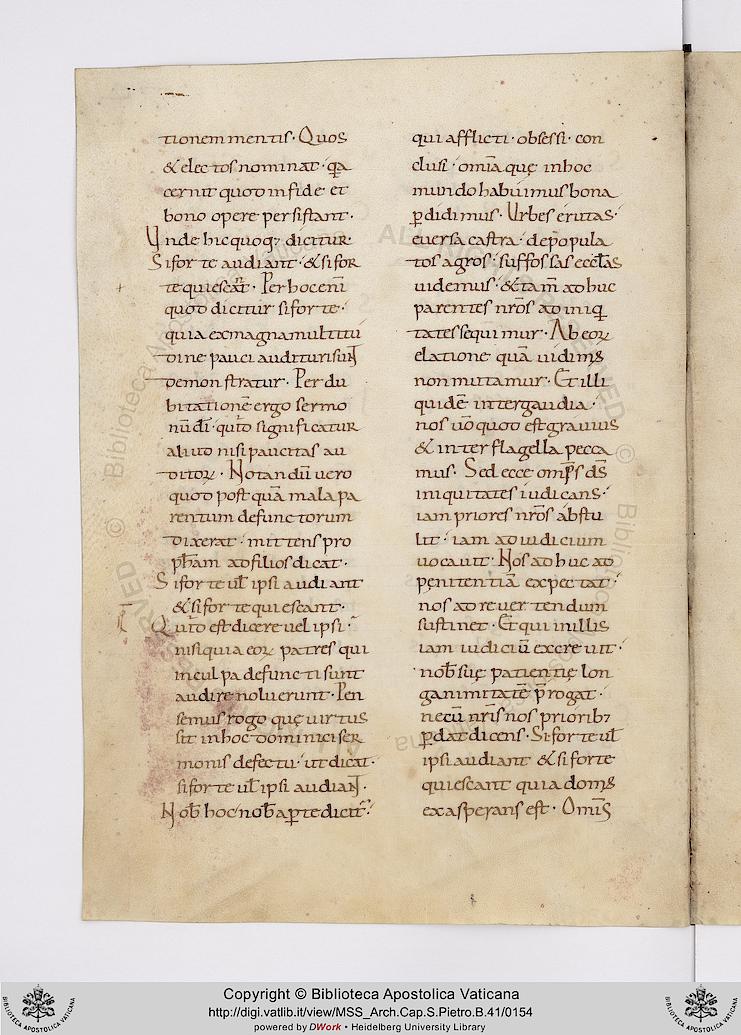 tionem mentis · Quos
& electos nominat · q̅a
cernit quod in fide et
bono opere persistant ·
Unde hic quoq; dicitur
Si forte audiant · & si for
te quiescant · Per hoc enī
quod dicitur si forte ·
quia ex magna multitu
dine pauci audituri sunt
demonstratur · Per du
bitationē ergo sermo
quid significatur
nisi paucitas au
ditoꝝ · Notandū uero
quod postquā mala pa
rentum defunctorum
dixerat · mittens pro
ph̅am ad filios dicat ·
Si forte ul̅ ipsi audiant
& si forte quiescant ·
Quid est dicere uel ipsi ·
nisi quia eoꝝ patres qui
in culpa defuncti sunt
audire noluerunt · Pen
semus rogo quę uirtus
sit in hoc dominici ser
monis defectu · ut dicat ·
si forte ul̅ ipsi audiant ·
Nob̅ hoc nob̅ aꝑte dicit̅ ·
qui afflicti · obsessi · con
clusi · om̅ia quę in hoc
mundo habuimus bona
ꝑdidimus · Urbes erutas ·
euersa castra · depopula
tos agros · suffossas eccl̅as
uidemus · & tam̅ adhuc
parentes nr̅os ad iniq
tates sequimur · Ab eoꝝ
elatione quā uidim;
non mutamur · Et illi
quidē inter gaudia ·
nos u̅o quod est grauius
& inter flagella pecca
mus · Sed ecce omp̅s ds̅
iniquitates iudicans ·
iam priores nr̅os abstu
lit · iam ad iudicium
uocauit · Nos adhuc ad
pęnitentiā expectat ·
nos ad reuertendum
sustinet · Et qui in illis
iam iudiciū exercuit ·
nob̅ suę patientię lon
ganimitatē p̅rogat ·
ne cū nr̅is nos priorib;
ꝑdat dicens · Si forte ul̅
ipsi audiant & si forte
quiescant quia dom;
exasperans est · Omīs
Copyright © Biblioteca Apostolica Vaticana
http://digi.vatlib.it/view/MSS_Arch.Cap.S.Pietro.B.41/0154
powered by DWork • Heidelberg University Library
BIBLIOTECA APOSTOLICA VATICANA
BIBLIOTECA APOSTOLICA VATICANA